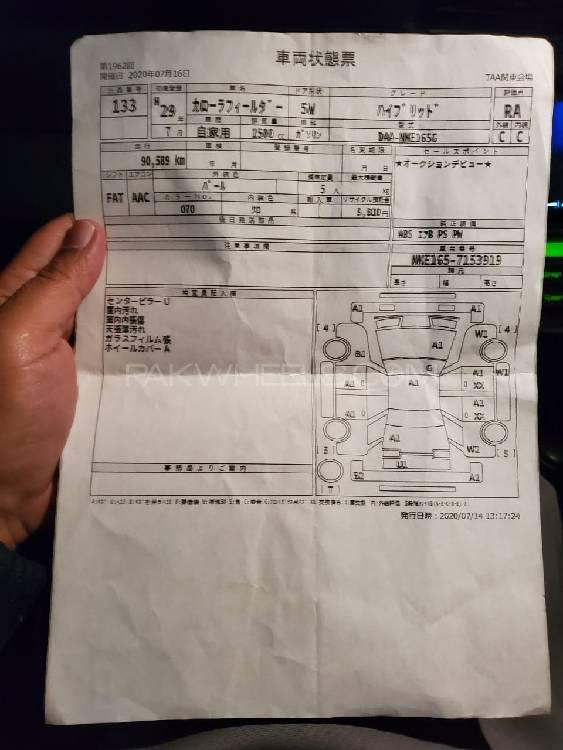 車両状態票
第1962回
開催日 2020年07月16日
TAA関東会場
出品番号 初度登録 車名 ドア形状 グレード 評価点
133 H29 カローラフィールダー 5W ハイブリッド RA
型式 外装 内装
7月 自家用 1500cc ガソリン DAA-NKE165G C C
走行 車検 登録番号 名変期限 セールスポイント
90,589 km 年 月 月 日 ★オークションデビュー★
シフト エアコン 外装色 乗車定員 最大積載量
FAT AAC パール 5人 kg
カラーNo. 内装色 輸入車 リサイクル預託金
070
後日発送部品 純正装備
ABS エアB PS PW
注意事項欄 車台番号
NKE165-7153919
諸元
長さ 幅 高さ
検査員記入欄
センターピラーU
室内汚れ
室内内張傷
天張薄汚れ
ガラスフィルム張
ホイールカバーA
A1 A1
[4] W2 [4]
A1
B1 G W1
A1 0 A1 A1 0 XX
A1 0 A1 0 XX
A1
[3] W2 [5]
U1
[7] B2 A1
PAKWHEELS.COM
事務局よりご案内
発行日時:2020/07/14 13:17:24